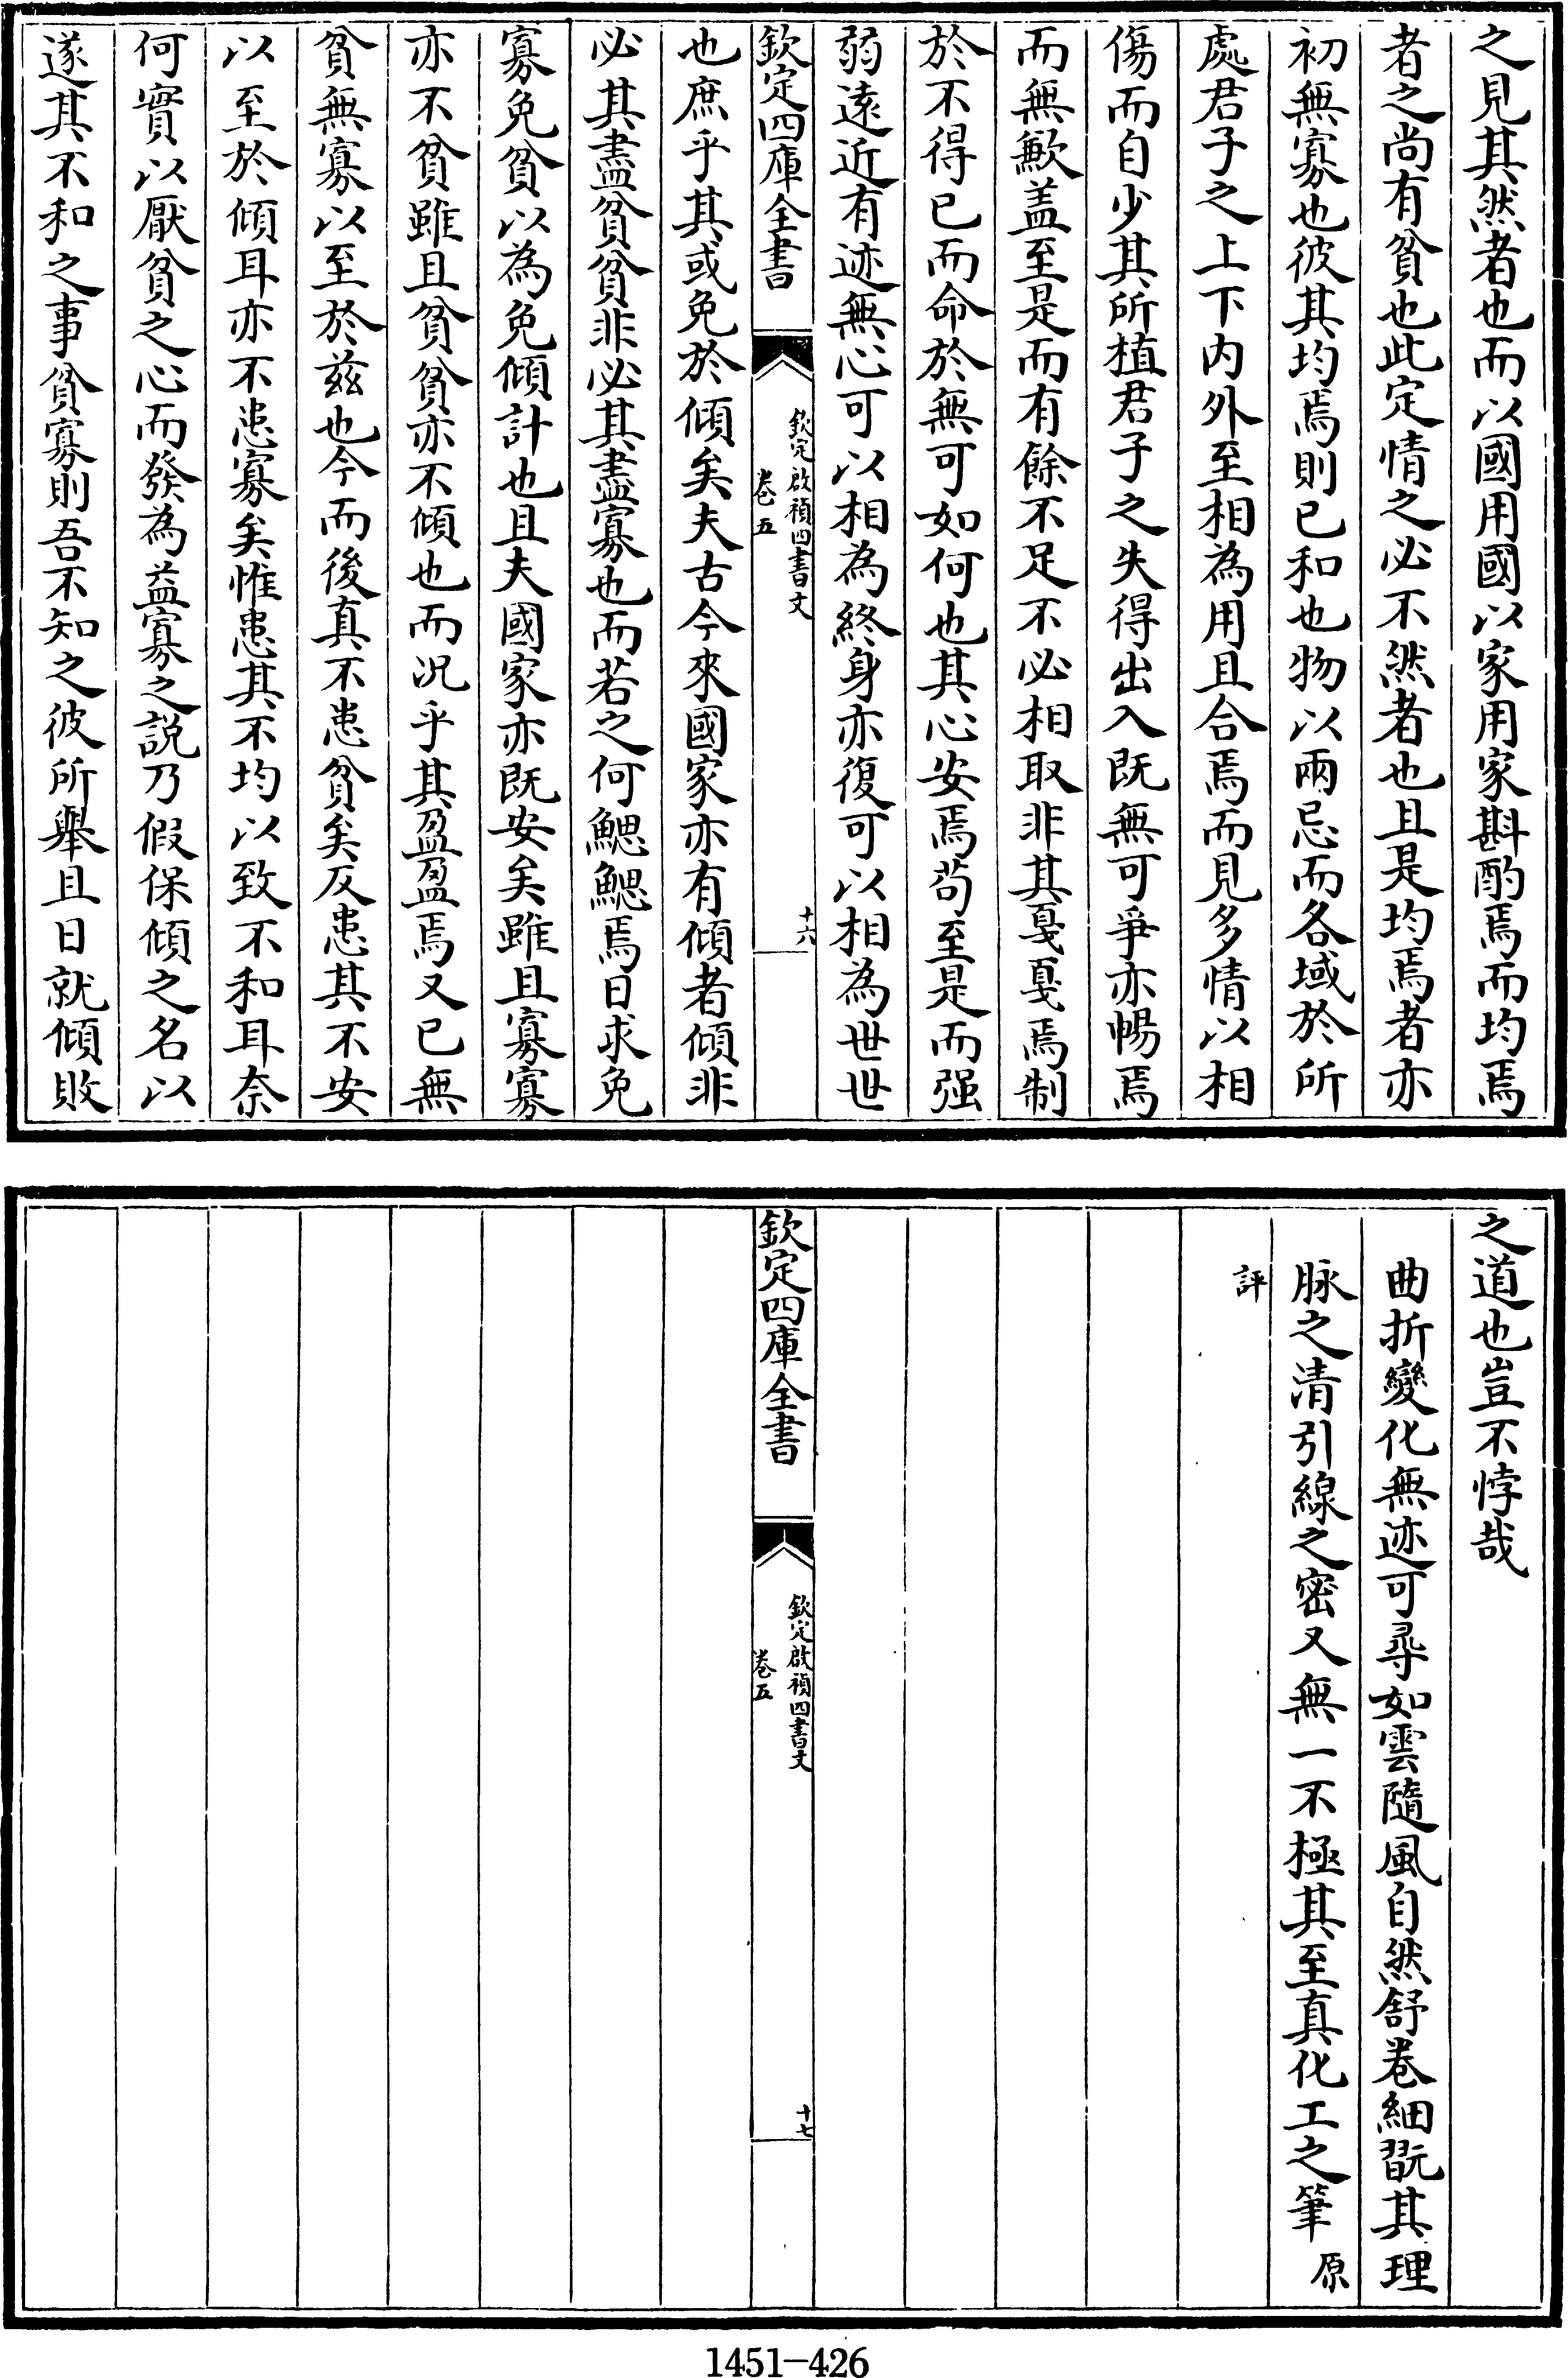 之見其然者也而以國用國以家用家斟酌焉而均焉
者之尚有貧也此定情之必不然者也且是均焉者亦
初無寡也彼其均焉則已和也物以兩忌而各域於所
處君子之上下内外至相為用且合焉而見多情以相
傷而自少其所植君子之失得出入既無可爭亦暢焉
而無歉盖至是而有餘不足不必相取非其戛戛焉制
於不得已而命於無可如何也其心安焉苟至是而强
弱遠近有迹無心可以相為終身亦復可以相為世世
欽定四庫全書
欽定啟禎四書文
卷五
十六
也庶乎其或免於傾矣夫古今來國家亦有傾者傾非
必其盡貧貧非必其盡寡也而若之何鰓鰓焉日求免
寡免貧以為免傾計也且夫國家亦既安矣雖且寡寡
亦不貧雖且貧貧亦不傾也而况乎其盈盈焉又已無
貧無寡以至於兹也今而後真不患貧矣反患其不安
以至於傾耳亦不患寡矣惟患其不均以致不和耳奈
何實以厭貧之心而發為益寡之説乃假保傾之名以
遂其不和之事貧寡則吾不知之彼所舉且日就傾敗
之道也豈不悖哉
曲折變化無迹可尋如雲隨風自然舒卷細翫其理
脉之清引線之密又無一不極其至真化工之筆原
評
欽定四庫全書
欽定啟禎四書文
卷五
十七
1451-426